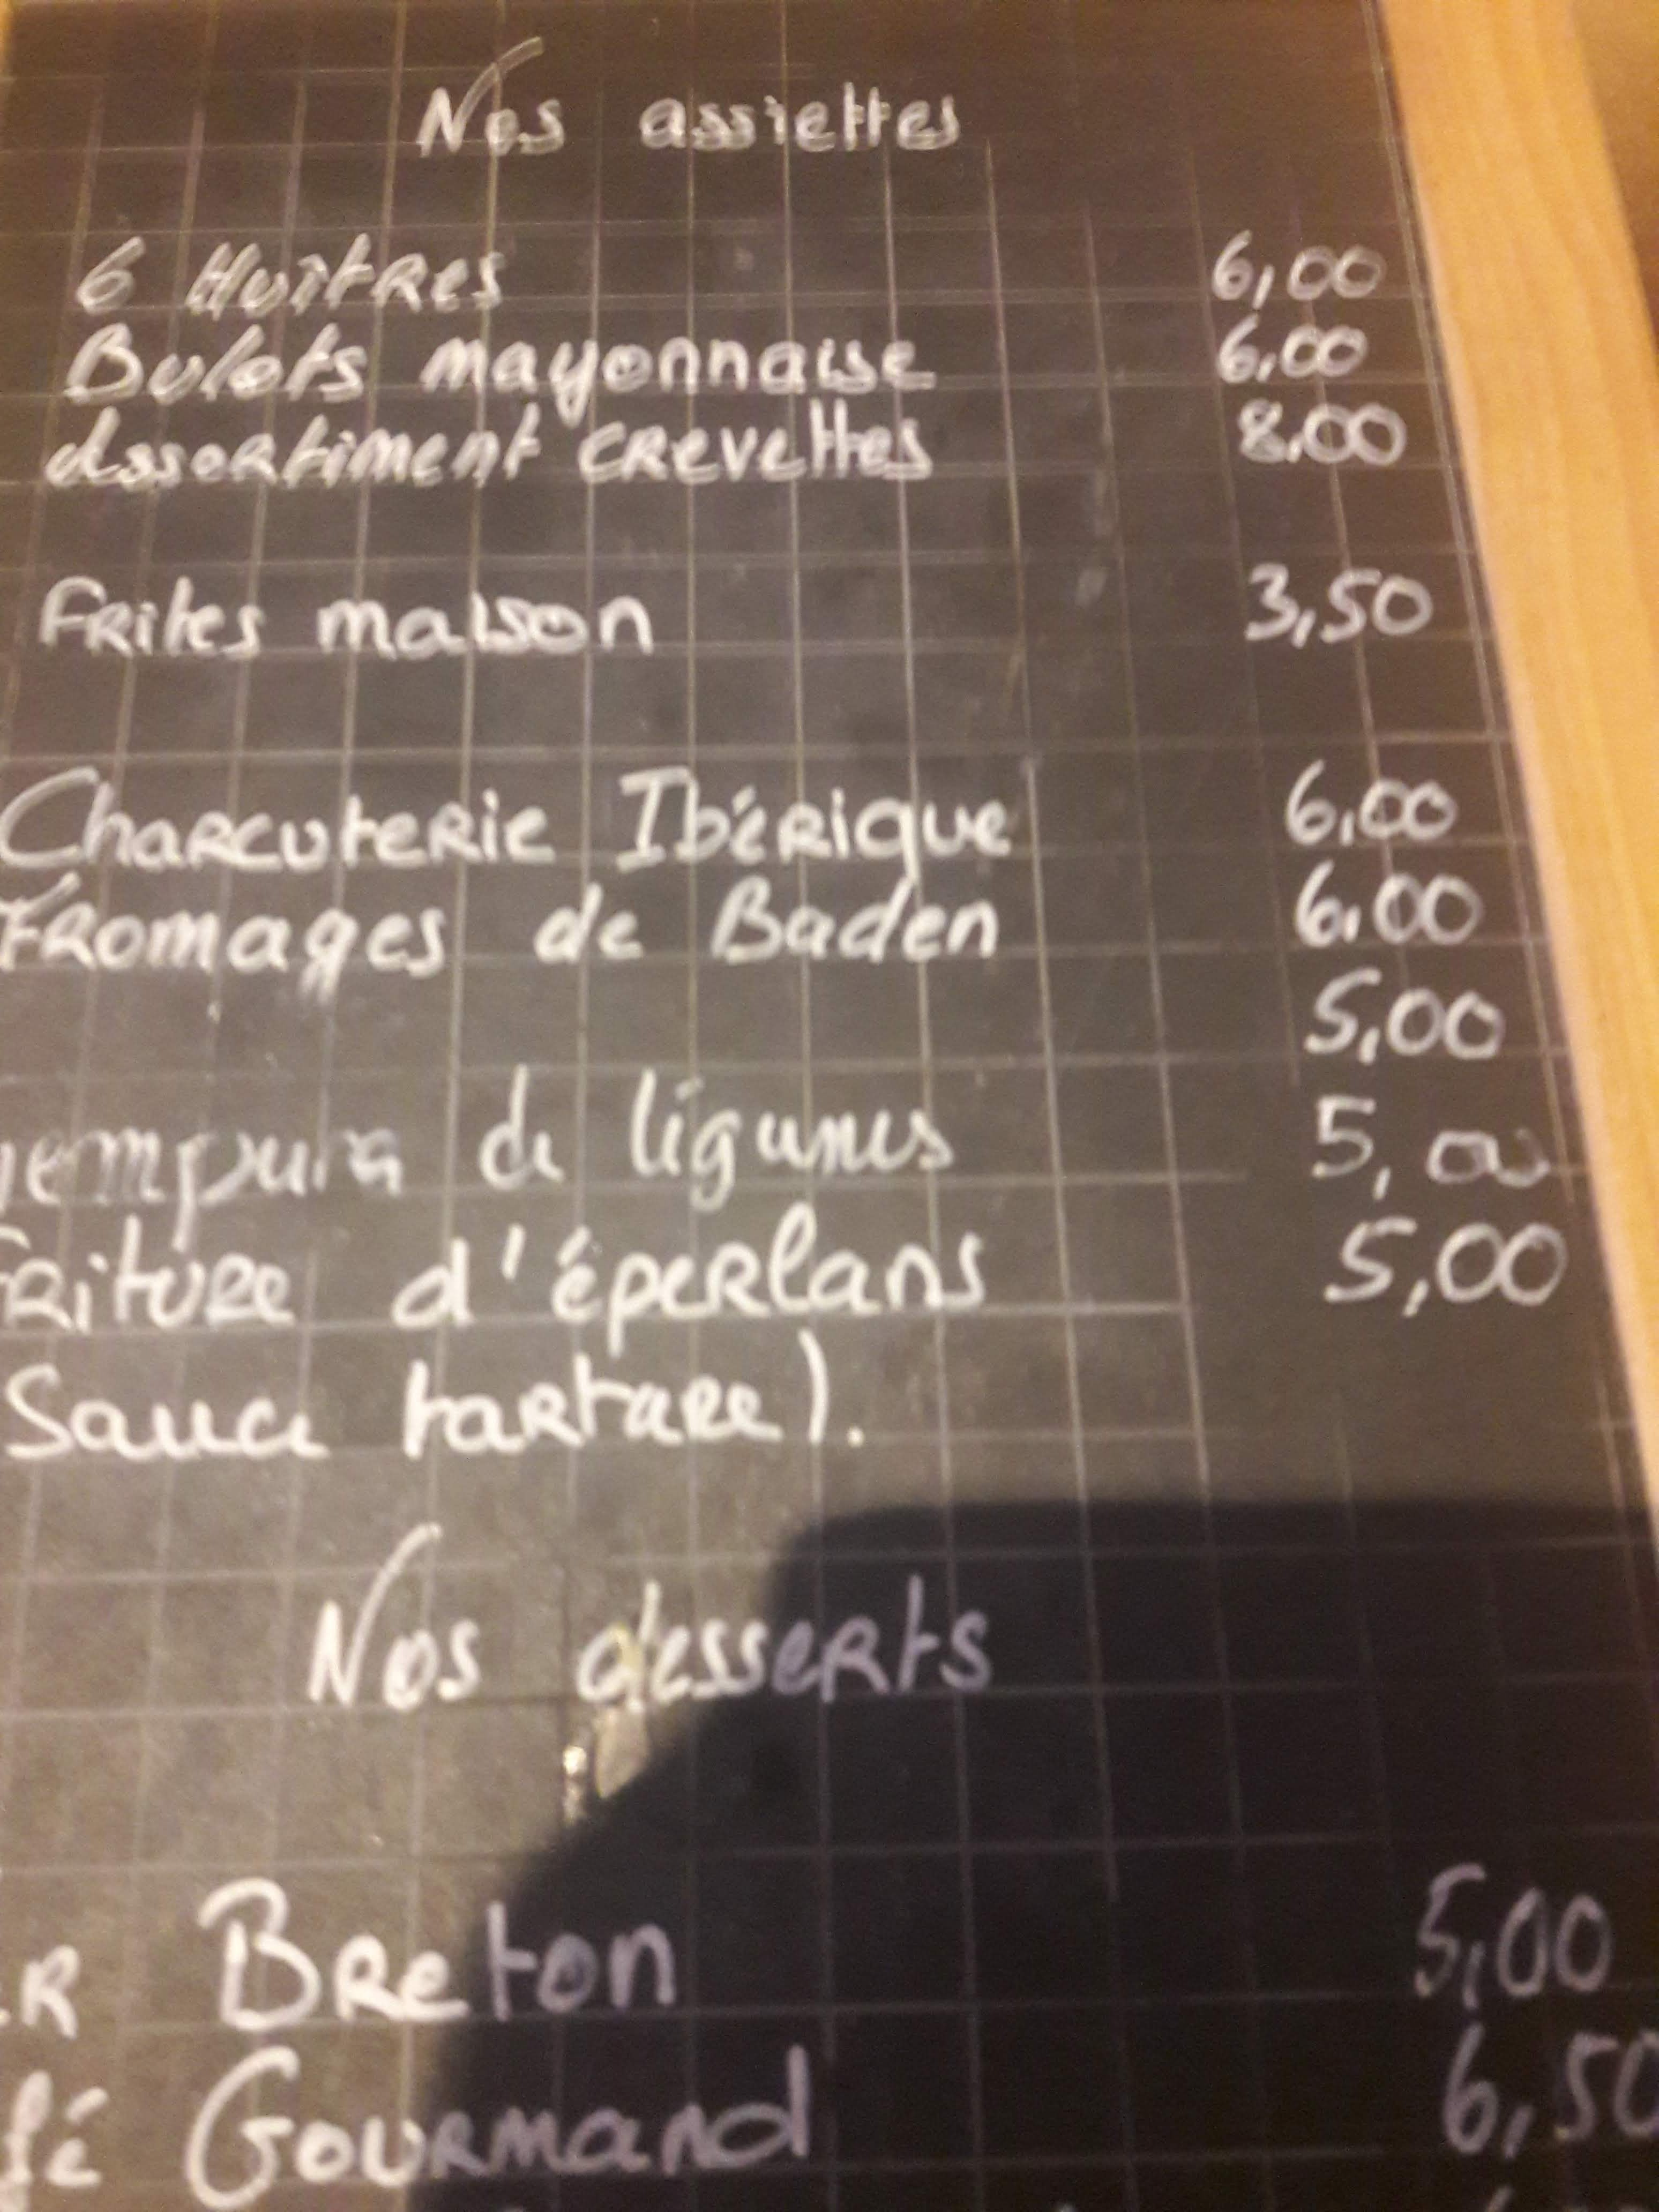 Nos assiettes
6 Huîtres 6,00
Bulots mayonnaise 6,00
Assortiment crevettes 8,00
Frites maison 3,50
Charcuterie Ibérique 6,00
Fromages de Baden 6,00
5,00
Tempura de légumes 5,00
Friture d'éperlans 5,00
Sauce tartare).
Nos desserts
R Breton 5,00
fé Gourmand 6,50